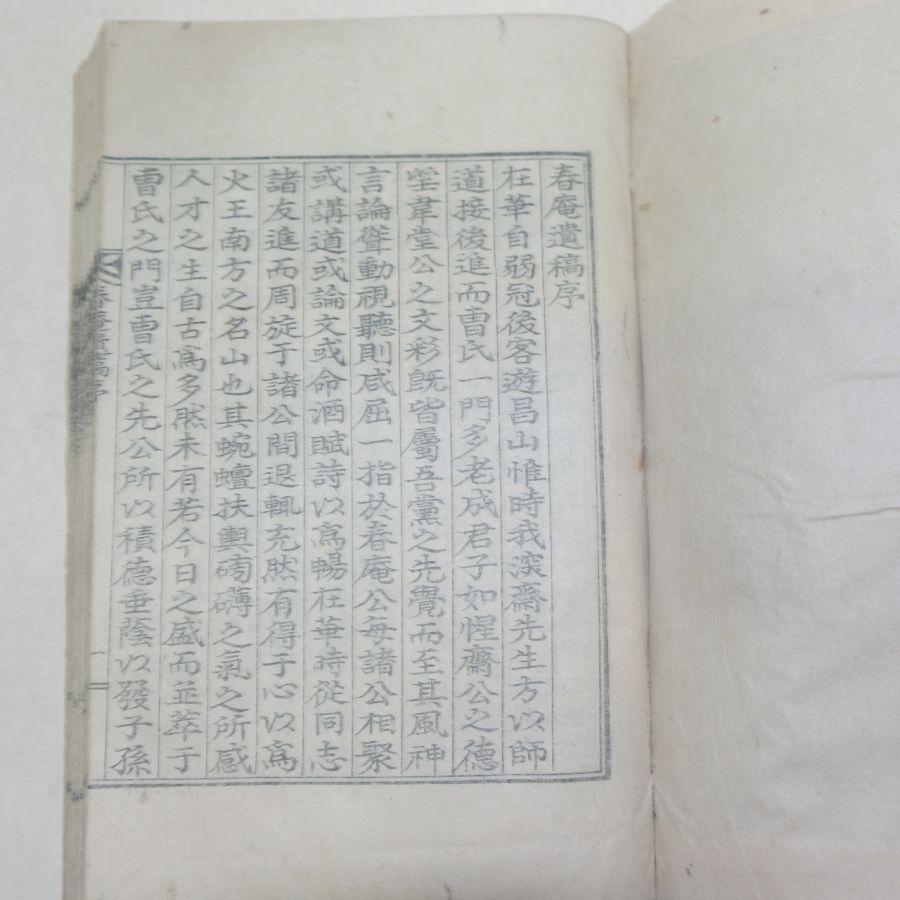 春庵遺稿序
在華自弱冠後客遊昌山惟時我深齋先生方以師
道接後進而曺氏一門多老成君子如惺齋公之德
望韋堂公之文彩旣皆屬吾黨之先覺而至其風神
言論聳動視聽則咸屈一指於春庵公每諸公相聚
或講道或論文或命酒賦詩以爲暢在華時從同志
諸友進而周旋于諸公間退輒充然有得于心以爲
火王南方之名山也其蜿蟺扶輿磅礴之氣之所感
人才之生自古爲多然未有若今日之盛而並萃于
曺氏之門豈曺氏之先公所以積德垂蔭以發子孫
春庵遺稿序
一